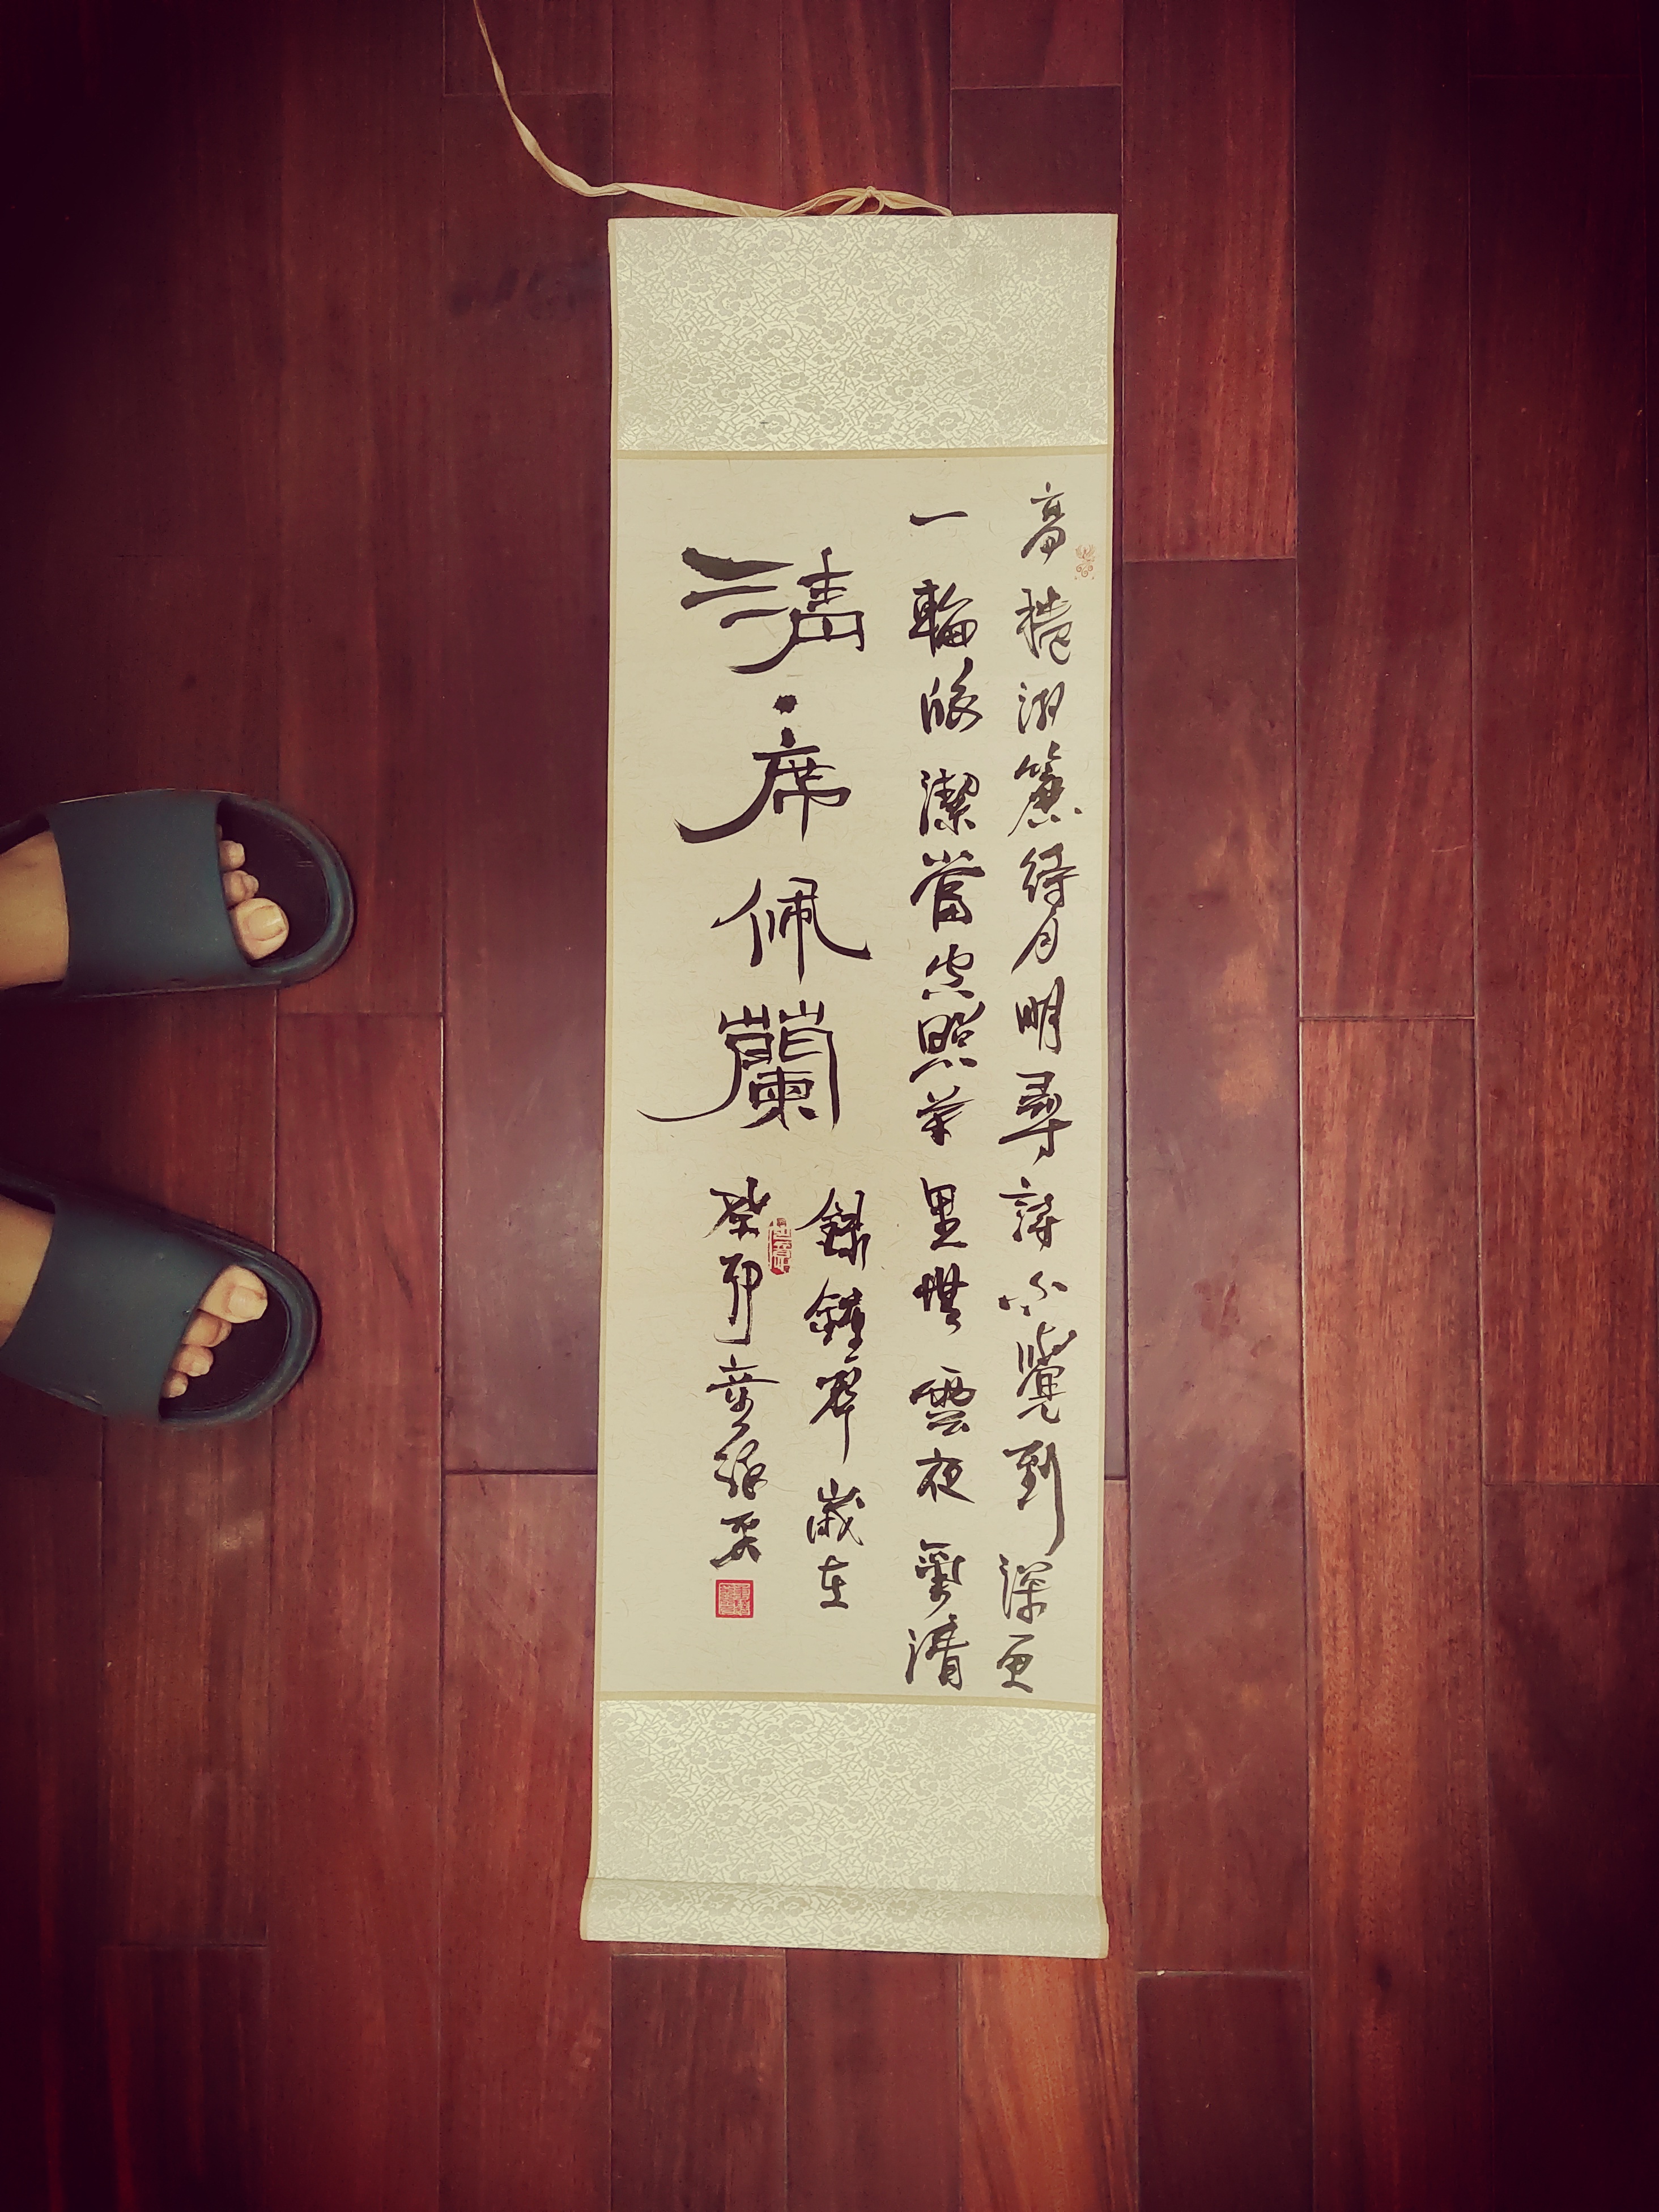 高捲湘簾待月明尋詩不覺到深更
一輪皎潔當空照萬里無雲夜氣清
清·席佩蘭
錄歲在
癸卯